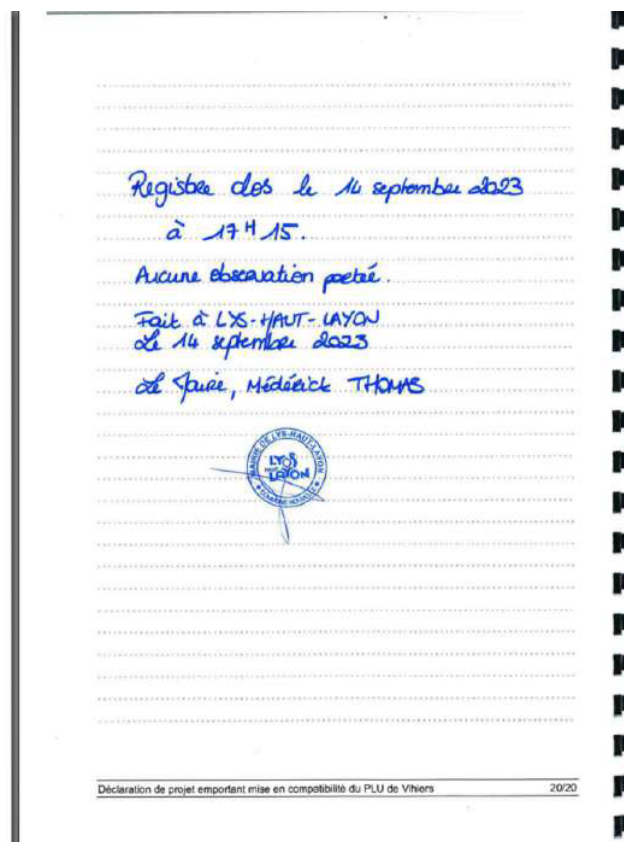 Registre clos le 14 septembre 2023
à 17H15.
Aucune observation portée.
Fait à LYS-HAUT-LAYON
Le 14 septembre 2023
Le Maire, Médérick THOMAS
MAIRIE DE LYS-HAUT-LAYON
LYS
HAUT
LAYON
★ COMMUNE NOUVELLE ★
Déclaration de projet emportant mise en compatibilité du PLU de Vihiers 20/20